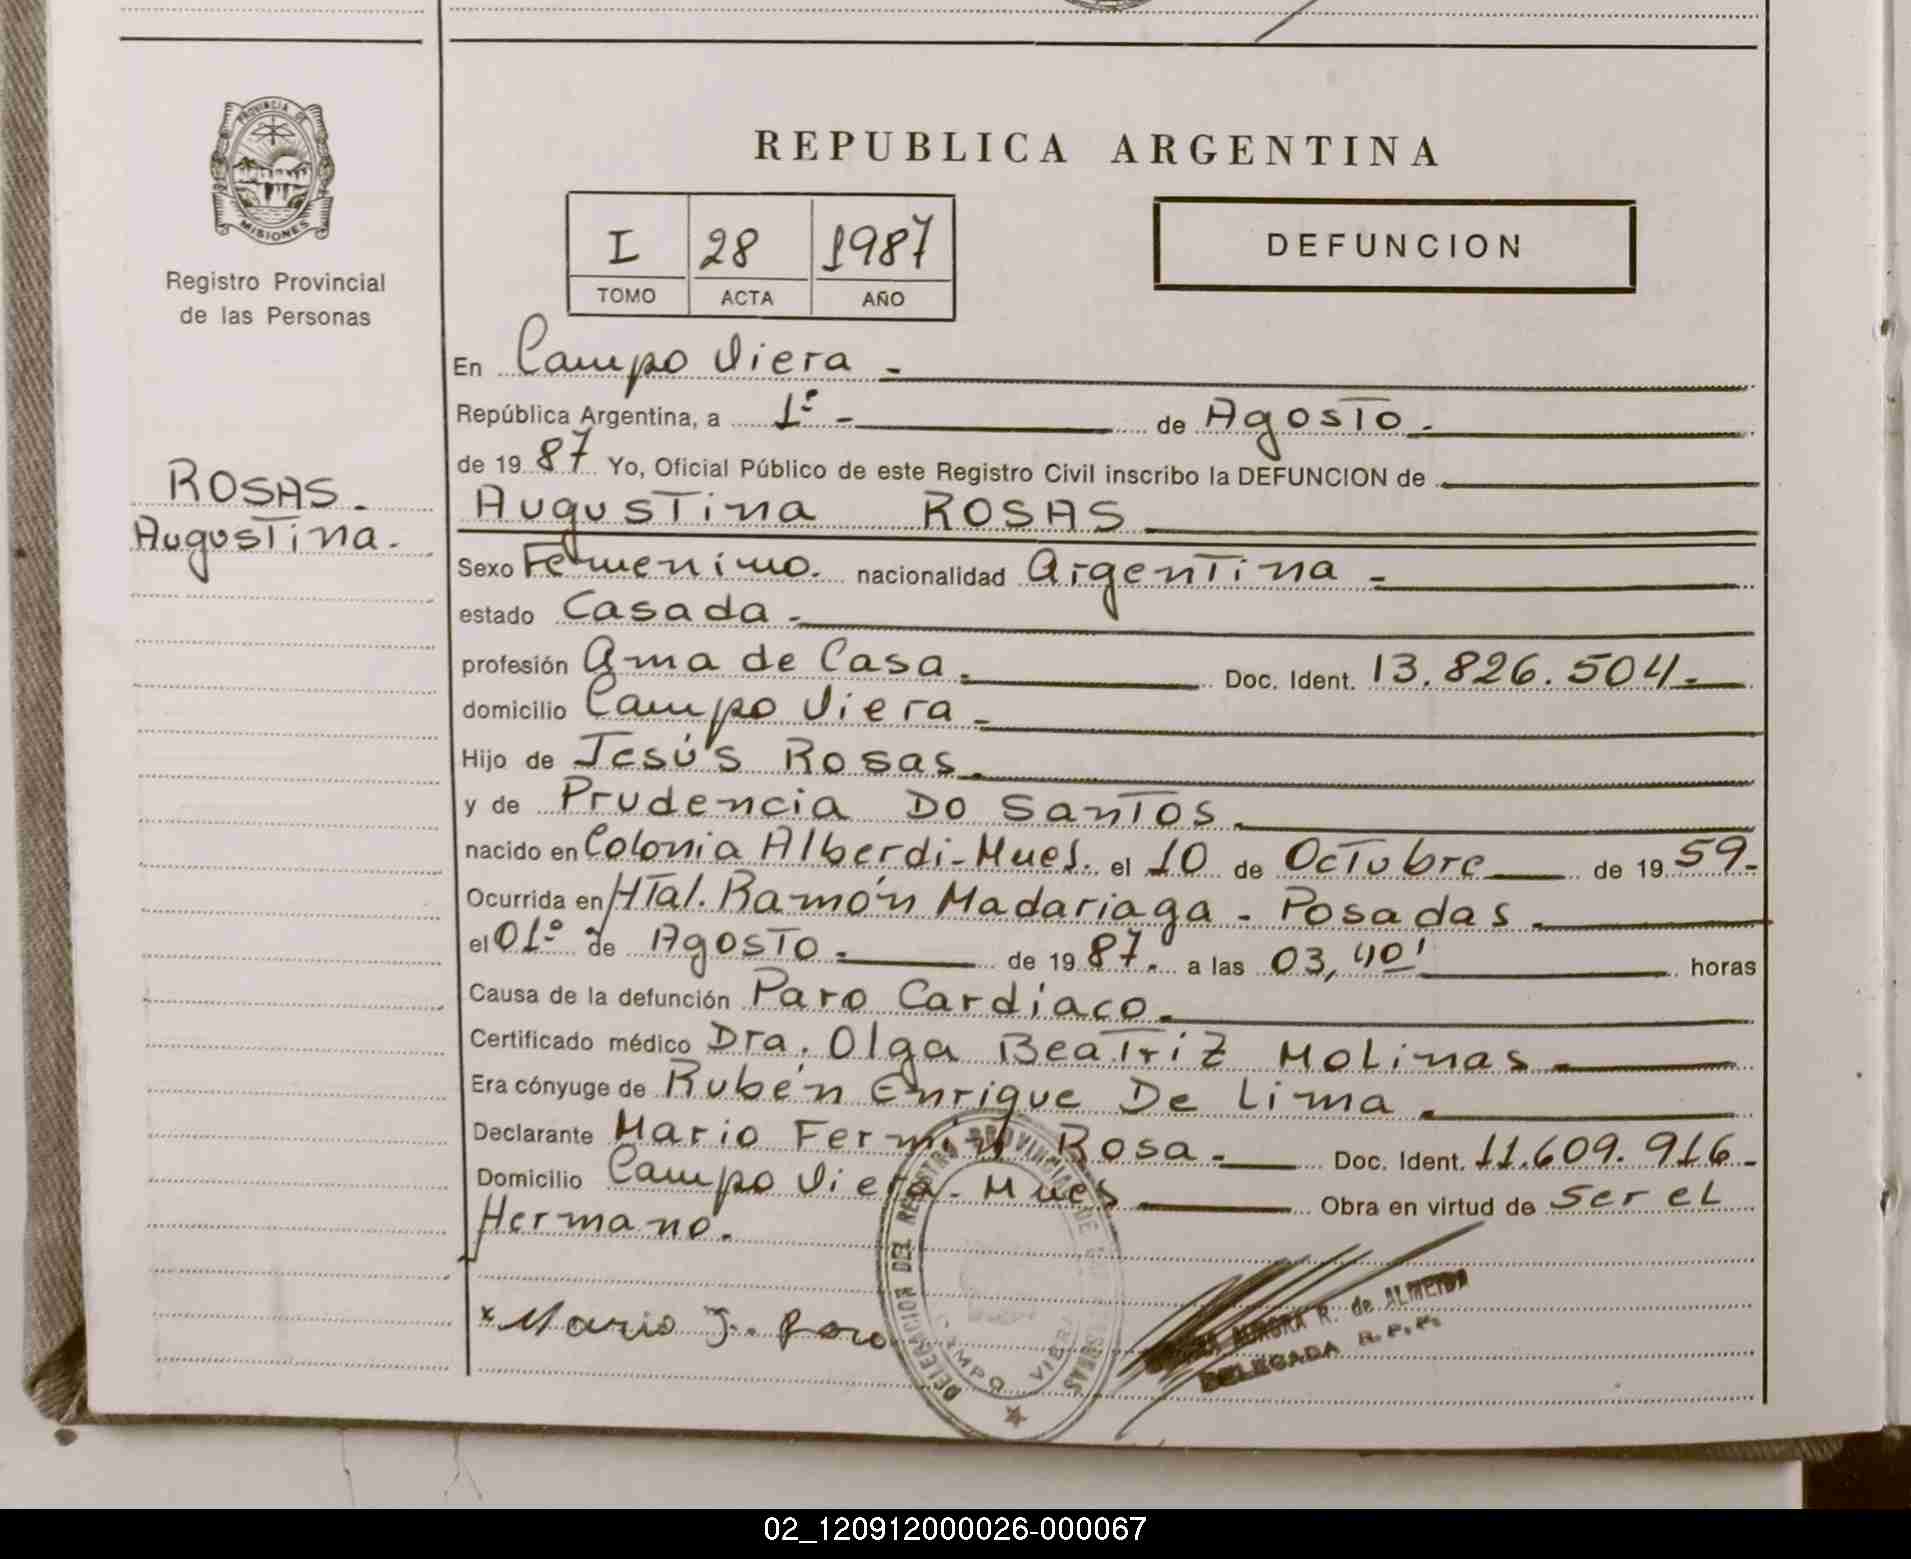 PROVINCIA DE
MISIONES
Registro Provincial
de las Personas
REPUBLICA ARGENTINA
I 28 1987
TOMO ACTA AÑO
DEFUNCION
En Campo Viera -
República Argentina, a 1º - de Agosto -
de 19 87 Yo, Oficial Público de este Registro Civil inscribo la DEFUNCION de
ROSAS -
Augustina -
Augustina ROSAS
Sexo Femenino. nacionalidad Argentina -
estado Casada -
profesión Ama de Casa - Doc. Ident. 13.826.504 -
domicilio Campo Viera -
Hijo de Jesús Rosas -
y de Prudencia Do Santos -
nacido en Colonia Alberdi - Mnes. el 10 de Octubre de 19 59 -
Ocurrida en Htal. Ramón Madariaga - Posadas
el 01º de Agosto - de 19 87 - a las 03,40' horas
Causa de la defunción Paro Cardíaco -
Certificado médico Dra. Olga Beatriz Molinas -
Era cónyuge de Rubén Enrique De Lima -
Declarante Mario Fermín Rosa - Doc. Ident. 11.609.916 -
Domicilio Campo Viera - Mnes Obra en virtud de ser el
Hermano -
DELEGACION DEL REGISTRO PROVINCIAL DE LAS PERSONAS
CAMPO VIERA
AURORA R. de ALMEIDA
DELEGADA R.P.P.
02_120912000026-000067